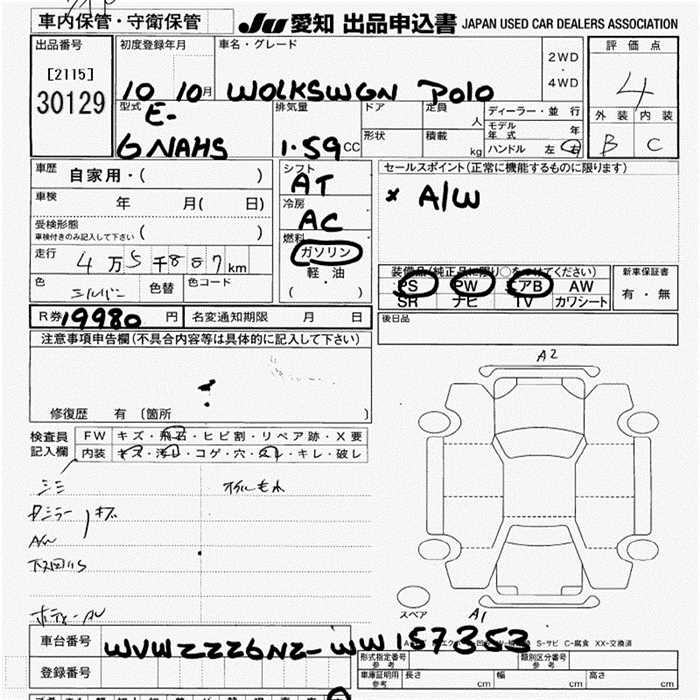 車内保管・守衛保管
JU 愛知 出品申込書 JAPAN USED CAR DEALERS ASSOCIATION
出品番号
[2115]
30129
初度登録年月
10 10月
車名・グレード
WOLKSWGN Polo
2WD
・
4WD
評価点
4
外装 内装
B C
型式
E-
6NAHS
排気量
1.59 CC
ドア
定員
人
形状
積載
kg
ディーラー・並行
モデル年式
年
ハンドル 左 右
車歴
自家用・( )
車検
年 月( 日)
受検形態
車検付きのみ記入して下さい
( )
走行
4万5千887km
色
シルバー
色替
色コード
シフト
AT
冷房
AC
燃料
ガソリン
軽・油
( )
セールスポイント(正常に機能するものに限ります)
× A/W
装備品(純正品に限り○をつけてください)
PS PW エアB AW
SR ナビ TV カワシート
新車保証書
有・無
R券 19980 円
名変通知期限 月 日
後日品
注意事項申告欄(不具合内容等は具体的に記入して下さい)
修復歴 有 (箇所 )
検査員
記入欄
FW キズ・飛石・ヒビ割・リペア跡・X要
内装 キズ・汚れ・コゲ・穴・スレ・キレ・破レ
A2
A1
スペア
A/W
S-サビ C-腐食 XX-交換済
車台番号
WVWZZZ6NZ-WW157353
登録番号
形式指定番号
参考
類別区分番号
参考
車庫証明用
参考
長さ cm 幅 cm 高さ cm